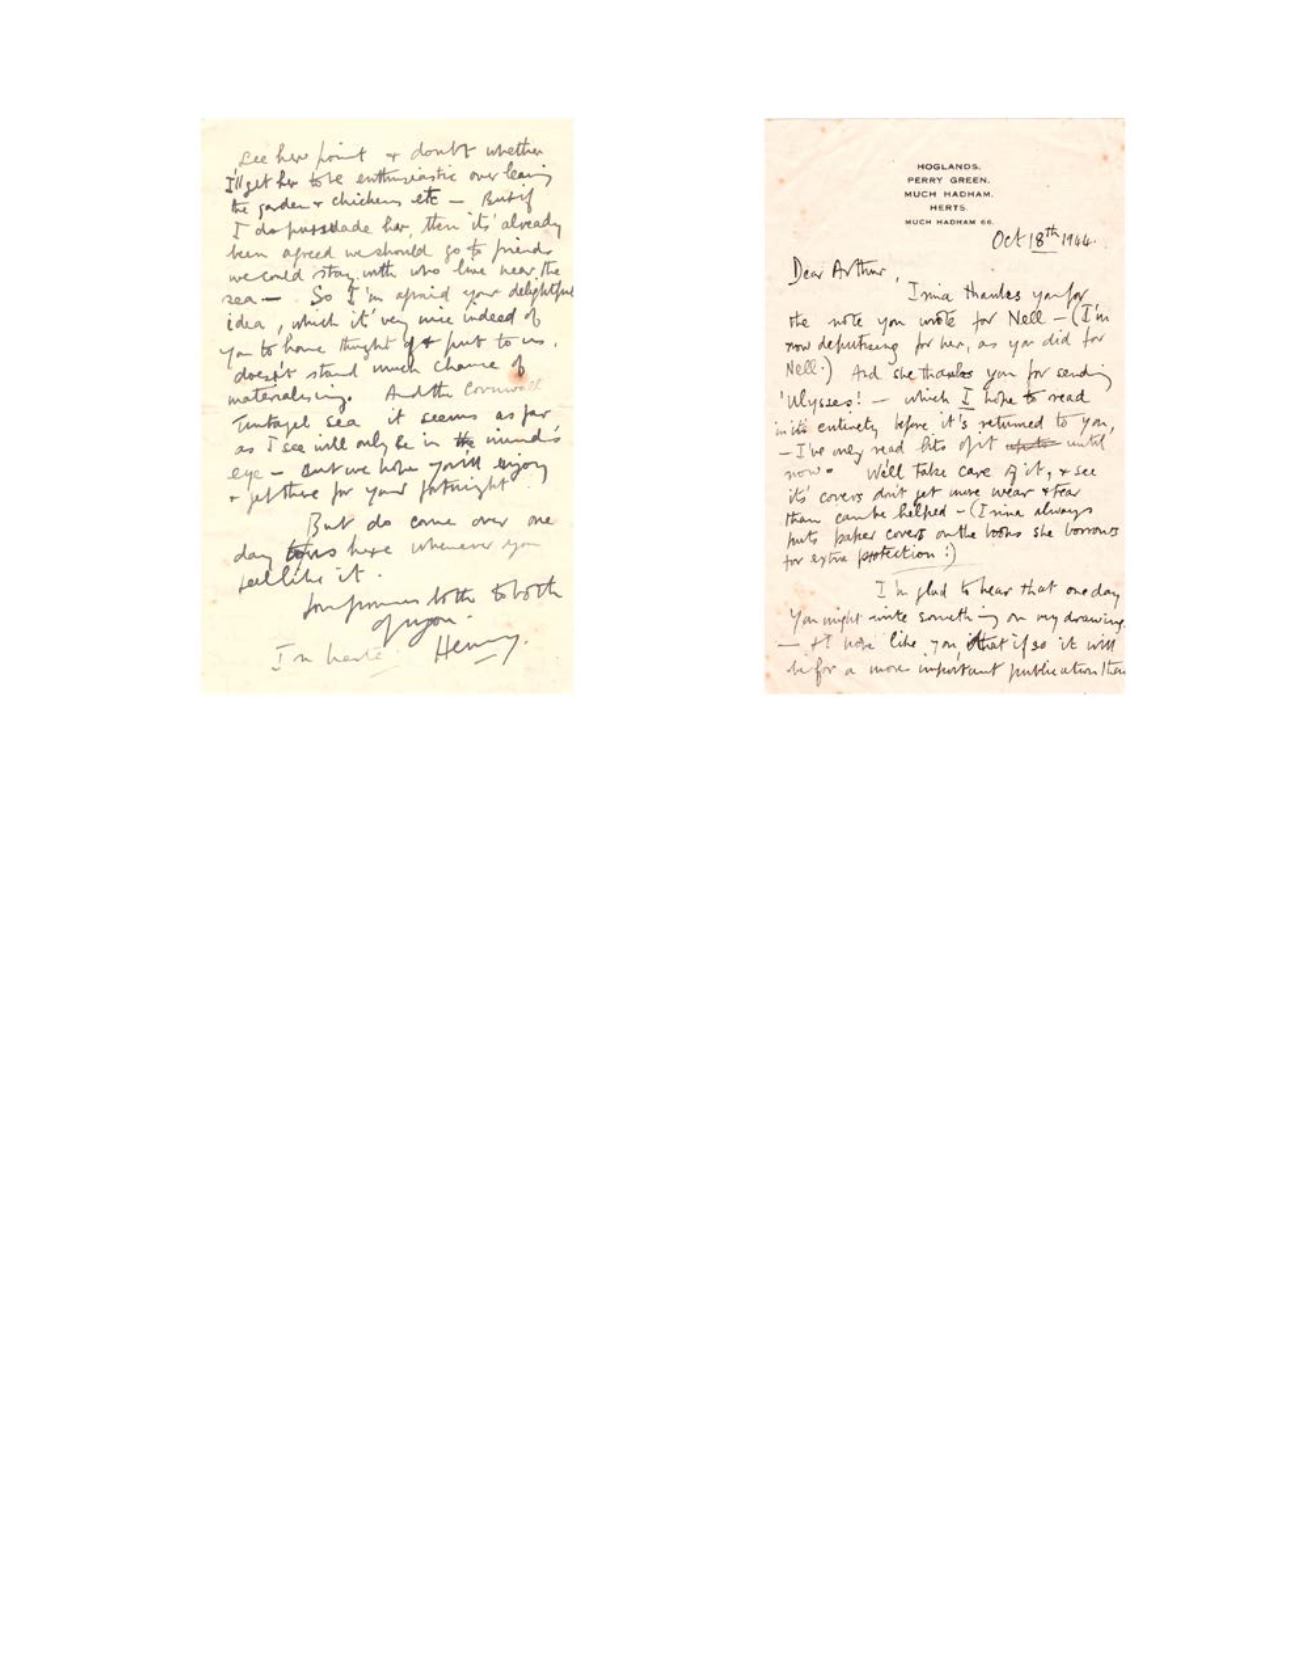 see her point & doubt whether
I'll get her to be enthusiastic over leaving
the garden & chickens etc — But if
I do pursuade her, then its' already
been agreed we should go to friends
we could stay with who live near the
sea — So I'm afraid your delightful
idea, which it' very nice indeed of
you to have thought of & put to us,
doesn't stand much chance of
materialising. And the Cornwall
Tintagel sea it seems as far
as I see will only be in the mind's
eye — But we hope you'll enjoy
& get there for your fortnight.
But do come over one
day to us here whenever you
feel like it.
to both
of you.
In haste Henry.
HOGLANDS.
PERRY GREEN.
MUCH HADHAM.
HERTS.
MUCH HADHAM 66.
Oct 18th 1944.
Dear Arthur,
Irina thanks you for
the note you wrote for Nell — (I'm
now deputising for her, as you did for
Nell.) And she thanks you for sending
'Ulysses! — which I hope to read
in its' entirety before it's returned to you,
— I've only read bits of it until
now. We'll take care of it, & see
its' covers don't get more wear & tear
than can be helped — (Irina always
puts paper covers on the books she borrows
for extra protection!)
I'm glad to hear that one day
You might write something on my drawings.
— & I hope like you, that if so it will
be for a more important publication than